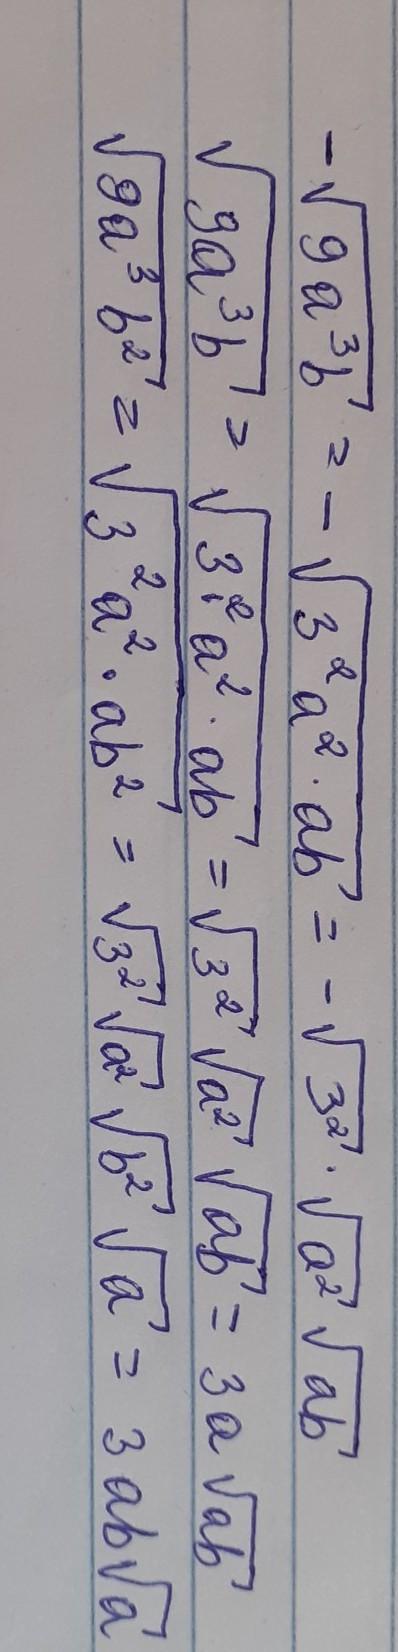 -√9a³b = -√3²a²·ab = -√3²·√a²√ab
√9a³b = √3²a²·ab = √3²√a²√ab = 3a√ab
√9a³b² = √3²a²·ab² = √3²√a²√b²√a = 3ab√a